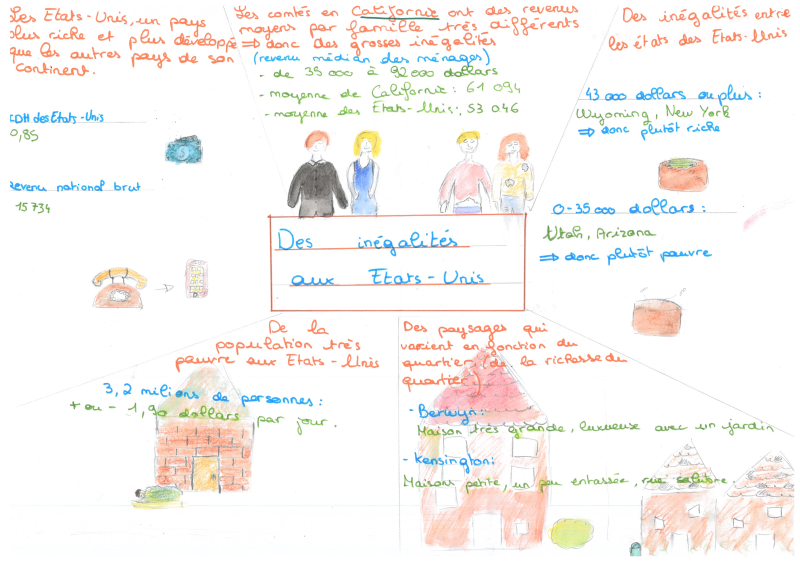 Les Etats-Unis, un pays
plus riche et plus développé
que les autres pays de son
continent.
IDH des Etats-Unis
0,85
Revenu national brut
15 734
Les comtés en Californie ont des revenus
moyens par famille très différents
⇒ donc des grosses inégalités
(revenu médian des ménages)
- de 35 000 à 92 000 dollars
- moyenne de Californie: 61 094
- moyenne des Etats-Unis: 53 046
Des inégalités entre
les états des Etats-Unis
43 000 dollars ou plus :
Wyoming, New York
⇒ donc plutôt riche
0-35 000 dollars :
Utah, Arizona
⇒ donc plutôt pauvre
Des inégalités
aux Etats-Unis
De la
population très
pauvre aux Etats-Unis
3,2 milions de personnes :
+ ou - 1,90 dollars par jour.
Des paysages qui
varient en fonction du
quartier (de la richesse du
quartier.)
- Berwyn:
Maison très grande, luxueuse avec un jardin
- Kensington:
Maisons petite, un peu entassée, rue salubre.